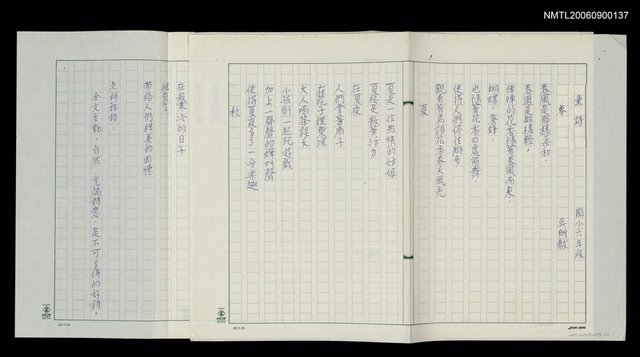 NMTL20060900137
童詩
國小六年級
春
吳昕毅
春風是那樣柔和，
春風是那樣輕，
陣陣的花香隨著春風而來，
蝴蝶、蜜蜂，
也隨著花香四處飛舞，
使得人們停住腳步
觀看著鳥語花香春天風光
夏
夏是一位熱情的姑娘
夏總是散著活力
在夏夜
人們拿著扇子
在院子裡乘涼
大人喝茶談天
小孩則一起玩遊戲
加上一聲聲的蟬叫聲
使得夏夜多了一份樂趣
秋
在寒冷的日子
帶給人們精美的回憶
老師評語：
全文生動、自然、充滿詩意，是不可多得的好詩。
20×25
20×25